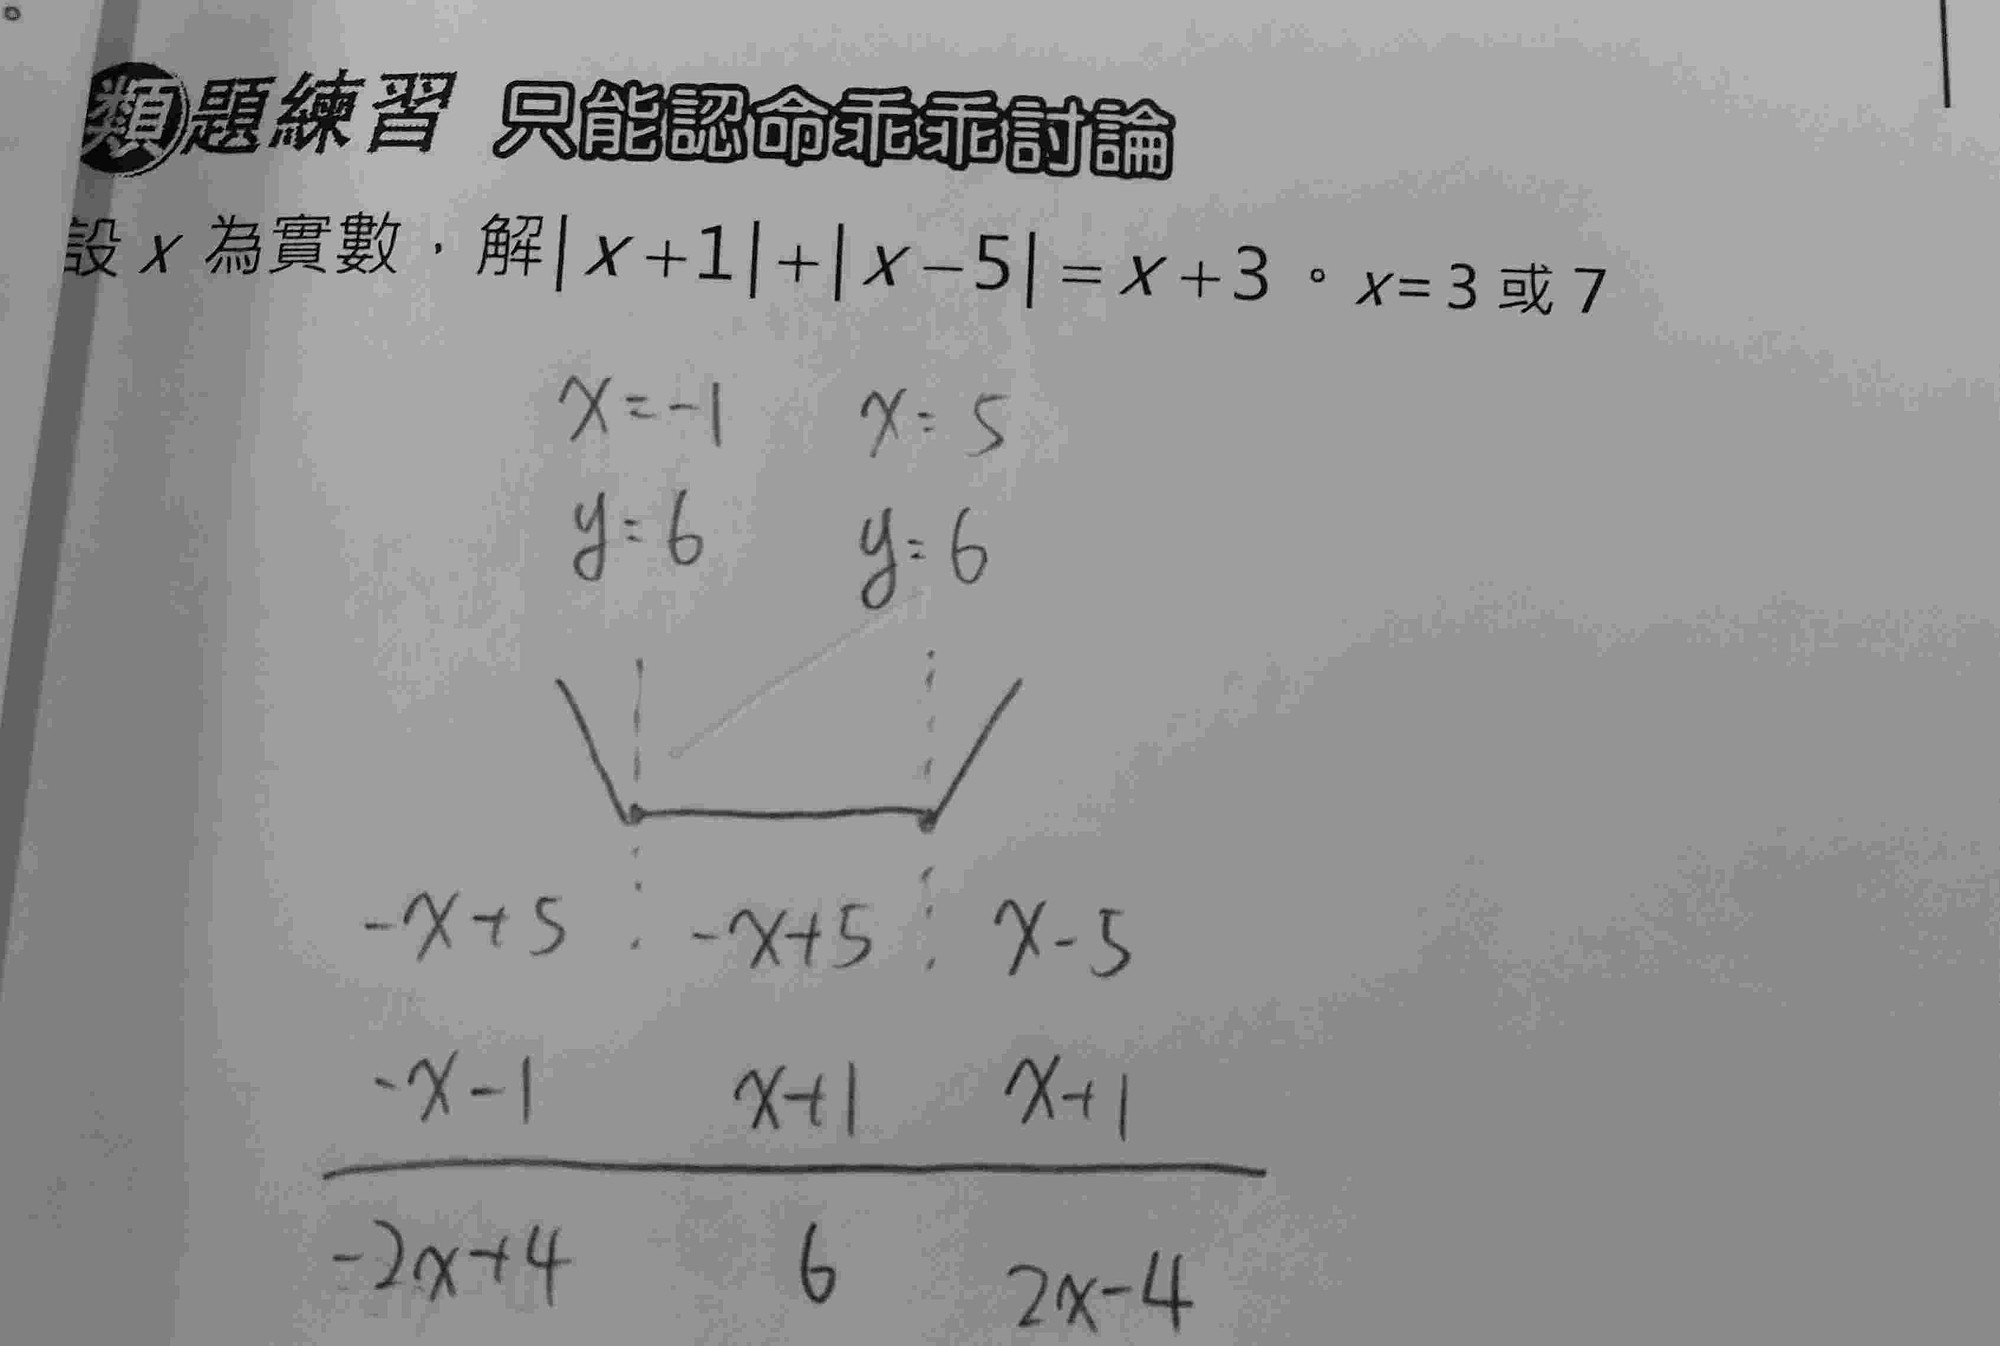 類題練習 只能認命乖乖討論
設 x 為實數，解|x+1|+|x-5|=x+3。x=3 或 7
x=-1 x=5
y=6 y=6
-x+5 -x+5 x-5
-x-1 x+1 x+1
-2x+4 6 2x-4